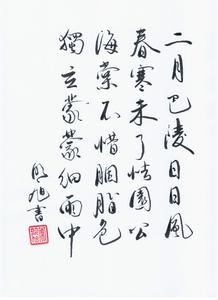 二月巴陵日日風
春寒未了怯園公
海棠不惜胭脂色
獨立蒙蒙細雨中
旭書